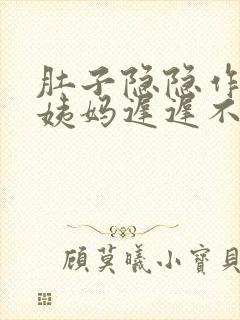 肚子隐隐作
姨妈迟迟不
顾莫曦小寶貝